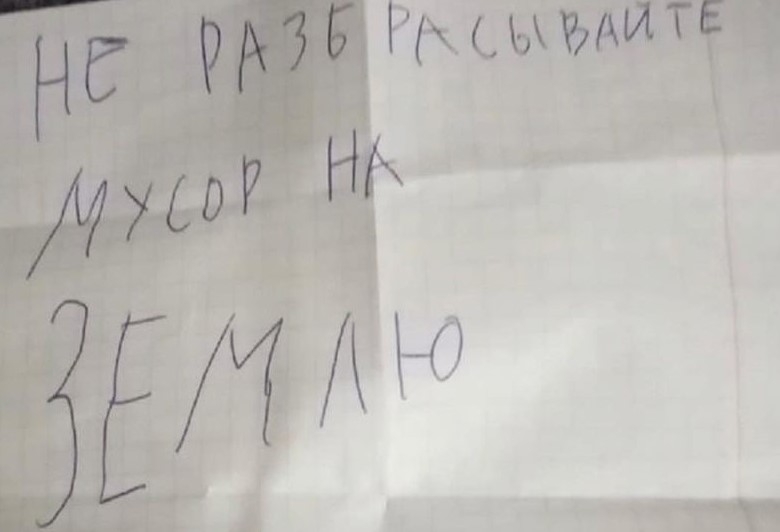 НЕ РАЗБРАСЫВАЙТЕ
МУСОР НА
ЗЕМЛЮ